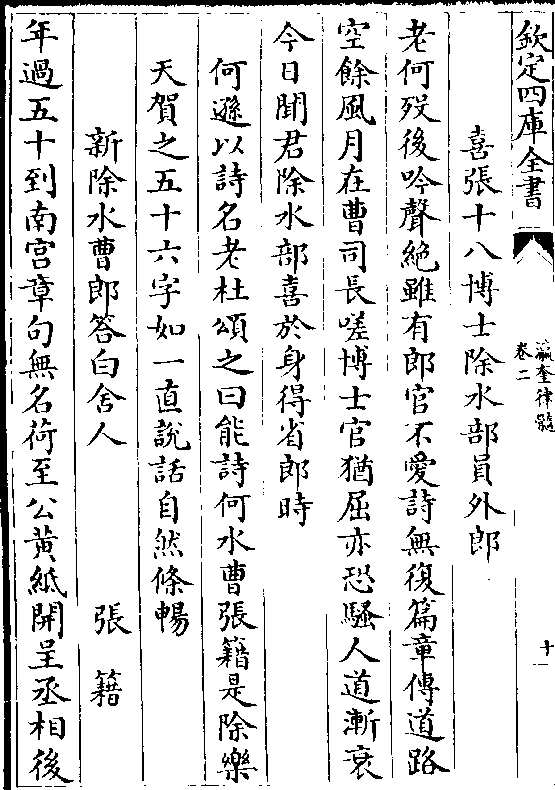 欽定四庫全書
瀛奎律髓
卷二
十一
喜張十八博士除水部員外郎
老何歿後吟聲絶雖有郎官不愛詩無復篇章傳道路
空餘風月在曹司長嗟博士官猶屈亦恐騷人道漸衰
今日聞君除水部喜於身得省郎時
何遜以詩名老杜頌之曰能詩何水曹張籍是除樂
天賀之五十六字如一直說話自然條暢
新除水曹郎答白舍人 張籍
年過五十到南宫章句無名荷至公黄紙開呈丞相後